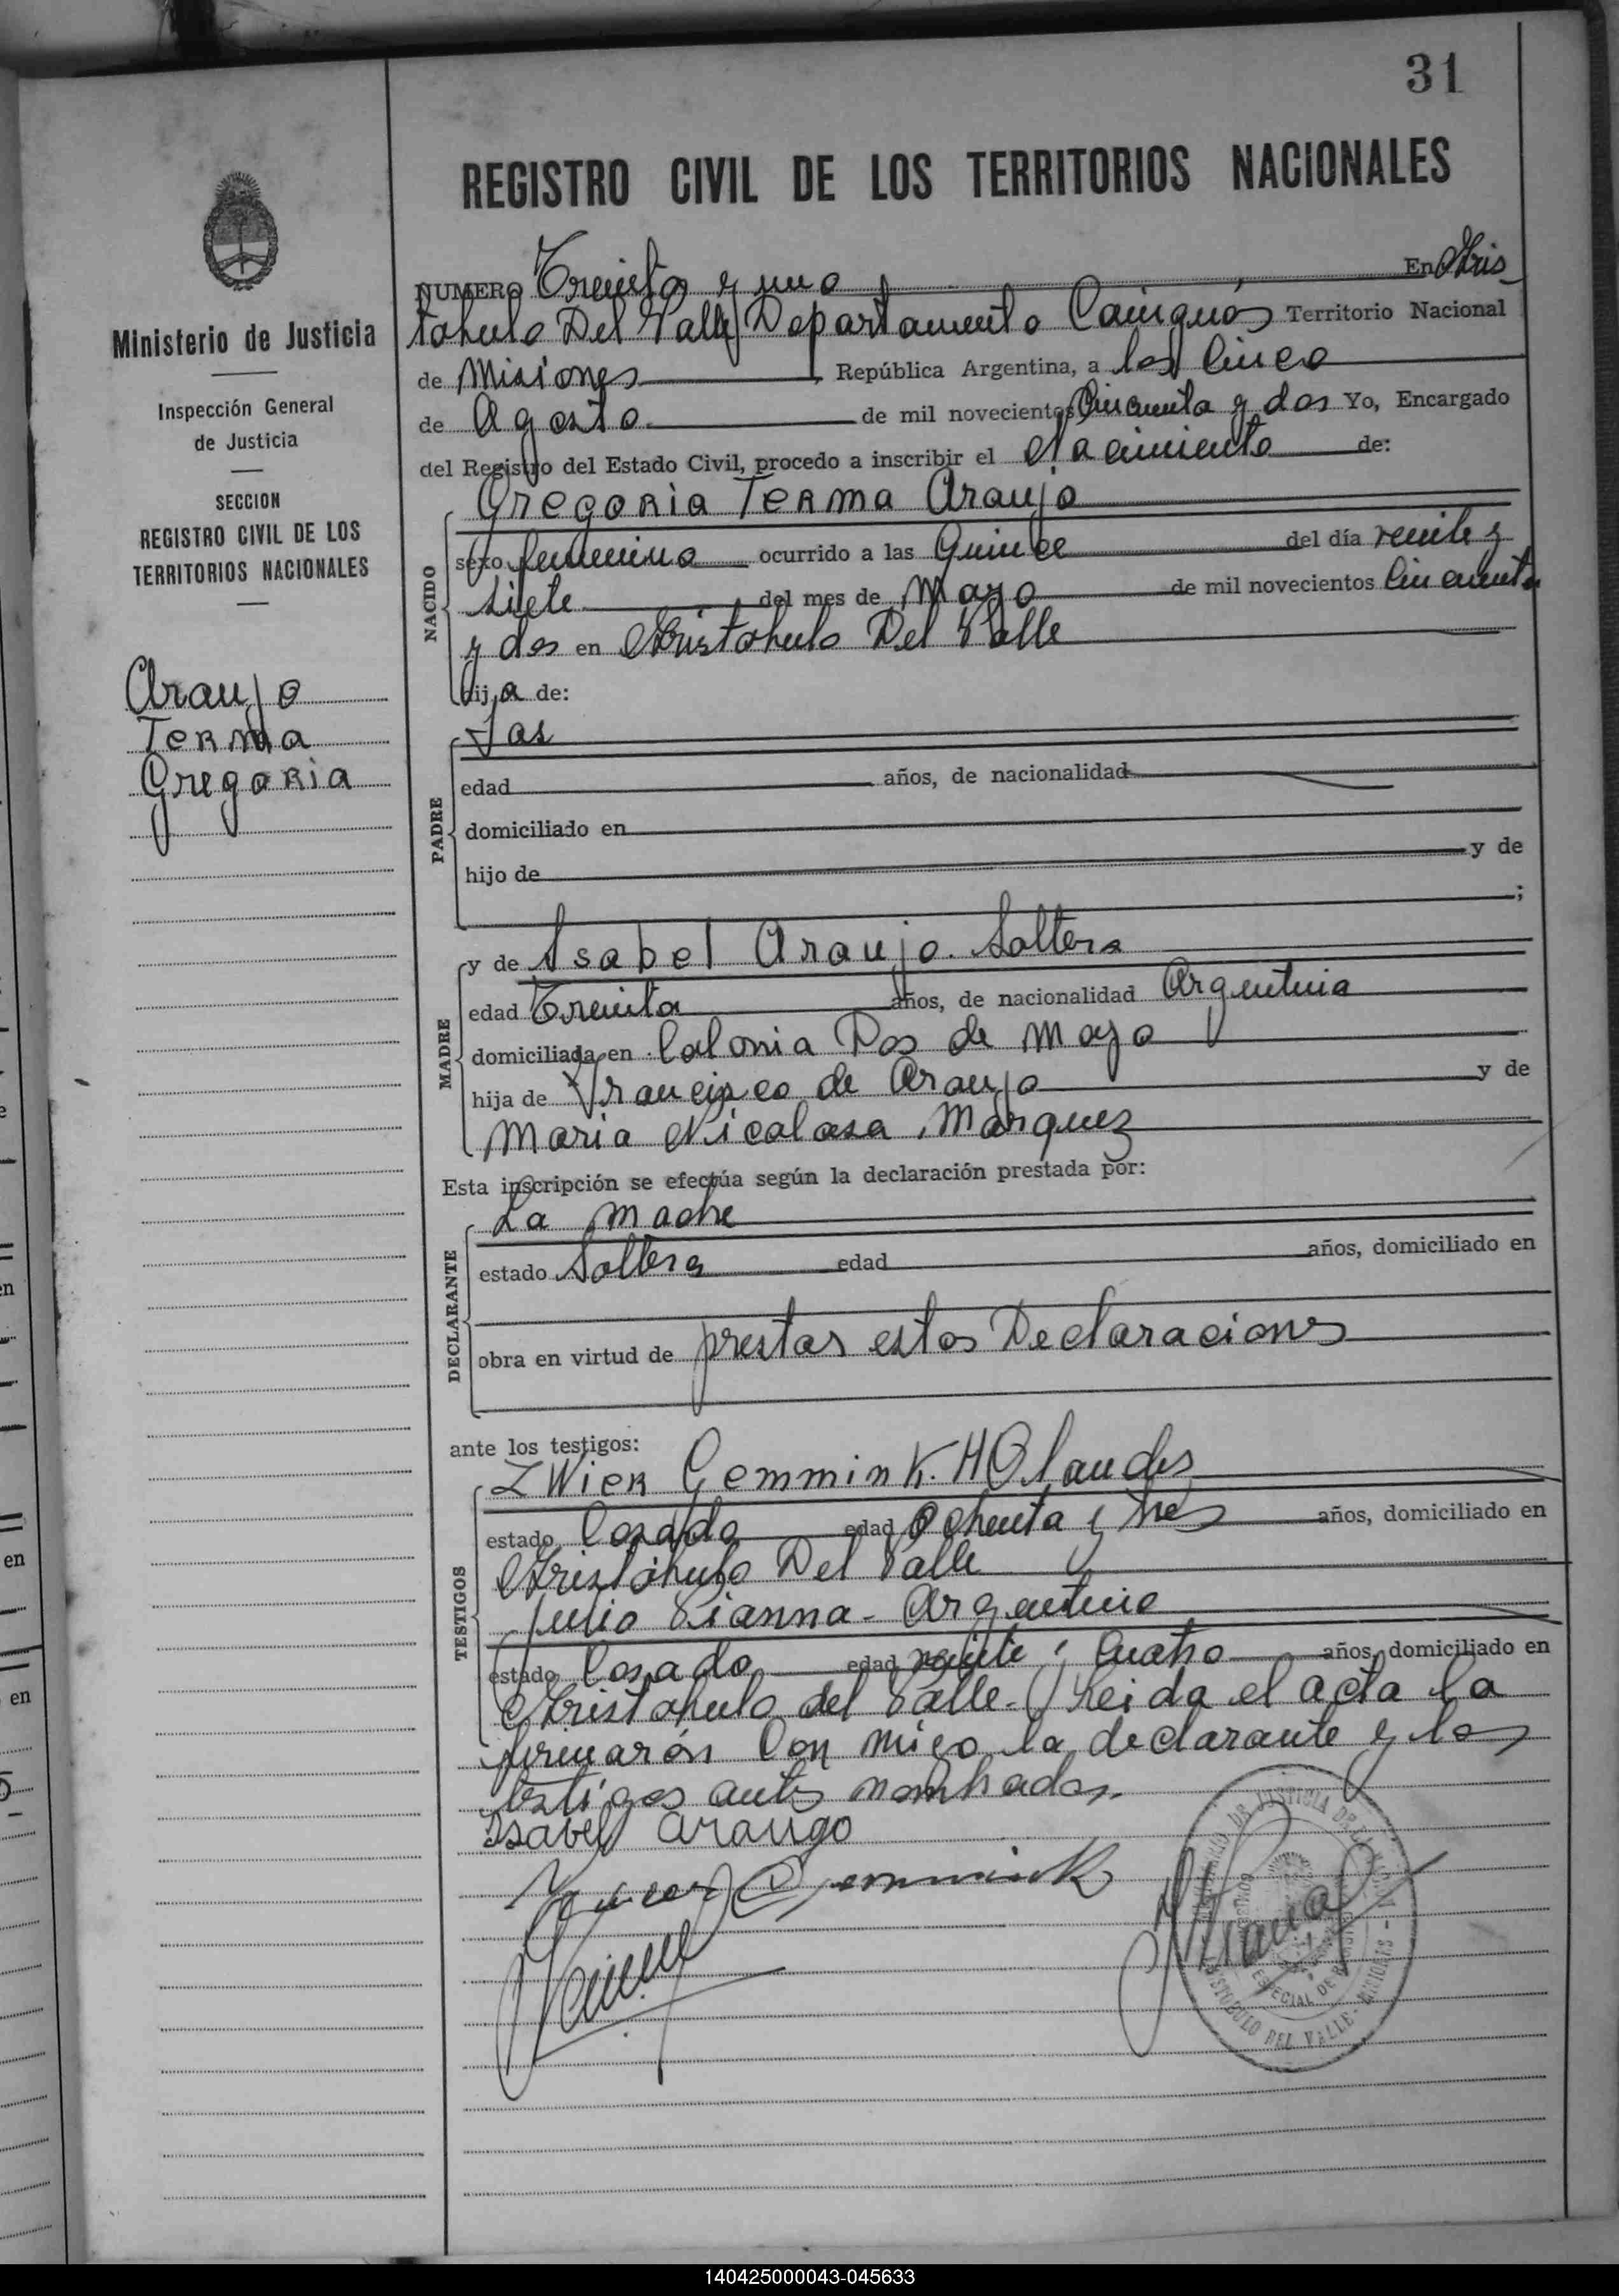 31
REGISTRO CIVIL DE LOS TERRITORIOS NACIONALES
Ministerio de Justicia
Inspección General
de Justicia
SECCION
REGISTRO CIVIL DE LOS
TERRITORIOS NACIONALES
Araujo
Terma
Gregoria
NUMERO Treinta y uno En Aris
tobulo Del Valle Departamento Cainguás Territorio Nacional
de Misiones, República Argentina, a los Cinco
de Agosto de mil novecientos Cincuenta y dos Yo, Encargado
del Registro del Estado Civil, procedo a inscribir el Nacimiento de:
NACIDO
Gregoria Terma Araujo
sexo femenino ocurrido a las Quince del día veinte y
siete del mes de Mayo de mil novecientos Cincuenta
y dos en Aristobulo Del Valle
hija de:
PADRE
edad años, de nacionalidad
domiciliado en
hijo de y de
;
MADRE
y de Isabel Araujo. Soltera
edad Treinta años, de nacionalidad Argentina
domiciliada en Colonia Dos de Mayo
hija de Francisco de Araujo y de
Maria Nicolasa Marquez
Esta inscripción se efectúa según la declaración prestada por:
DECLARANTE
La Madre
estado Soltera edad años, domiciliado en
obra en virtud de prestar estas Declaraciones
ante los testigos:
TESTIGOS
ZWier Gemmink. HOlandes
estado Casado edad Ochenta y tres años, domiciliado en
Aristobulo Del Valle
Julio Vianna - Argentino
estado Casado edad veinte y Cuatro años, domiciliado en
Aristobulo del Valle - Leida el acta la
firmarón Con migo la declarante y los
testigos antes nombrados.
Isabel Araugo
Gemmink
JUSTICIA DE
ESPECIAL DE
ARISTOBULO DEL VALLE - MISIONES
140425000043-045633